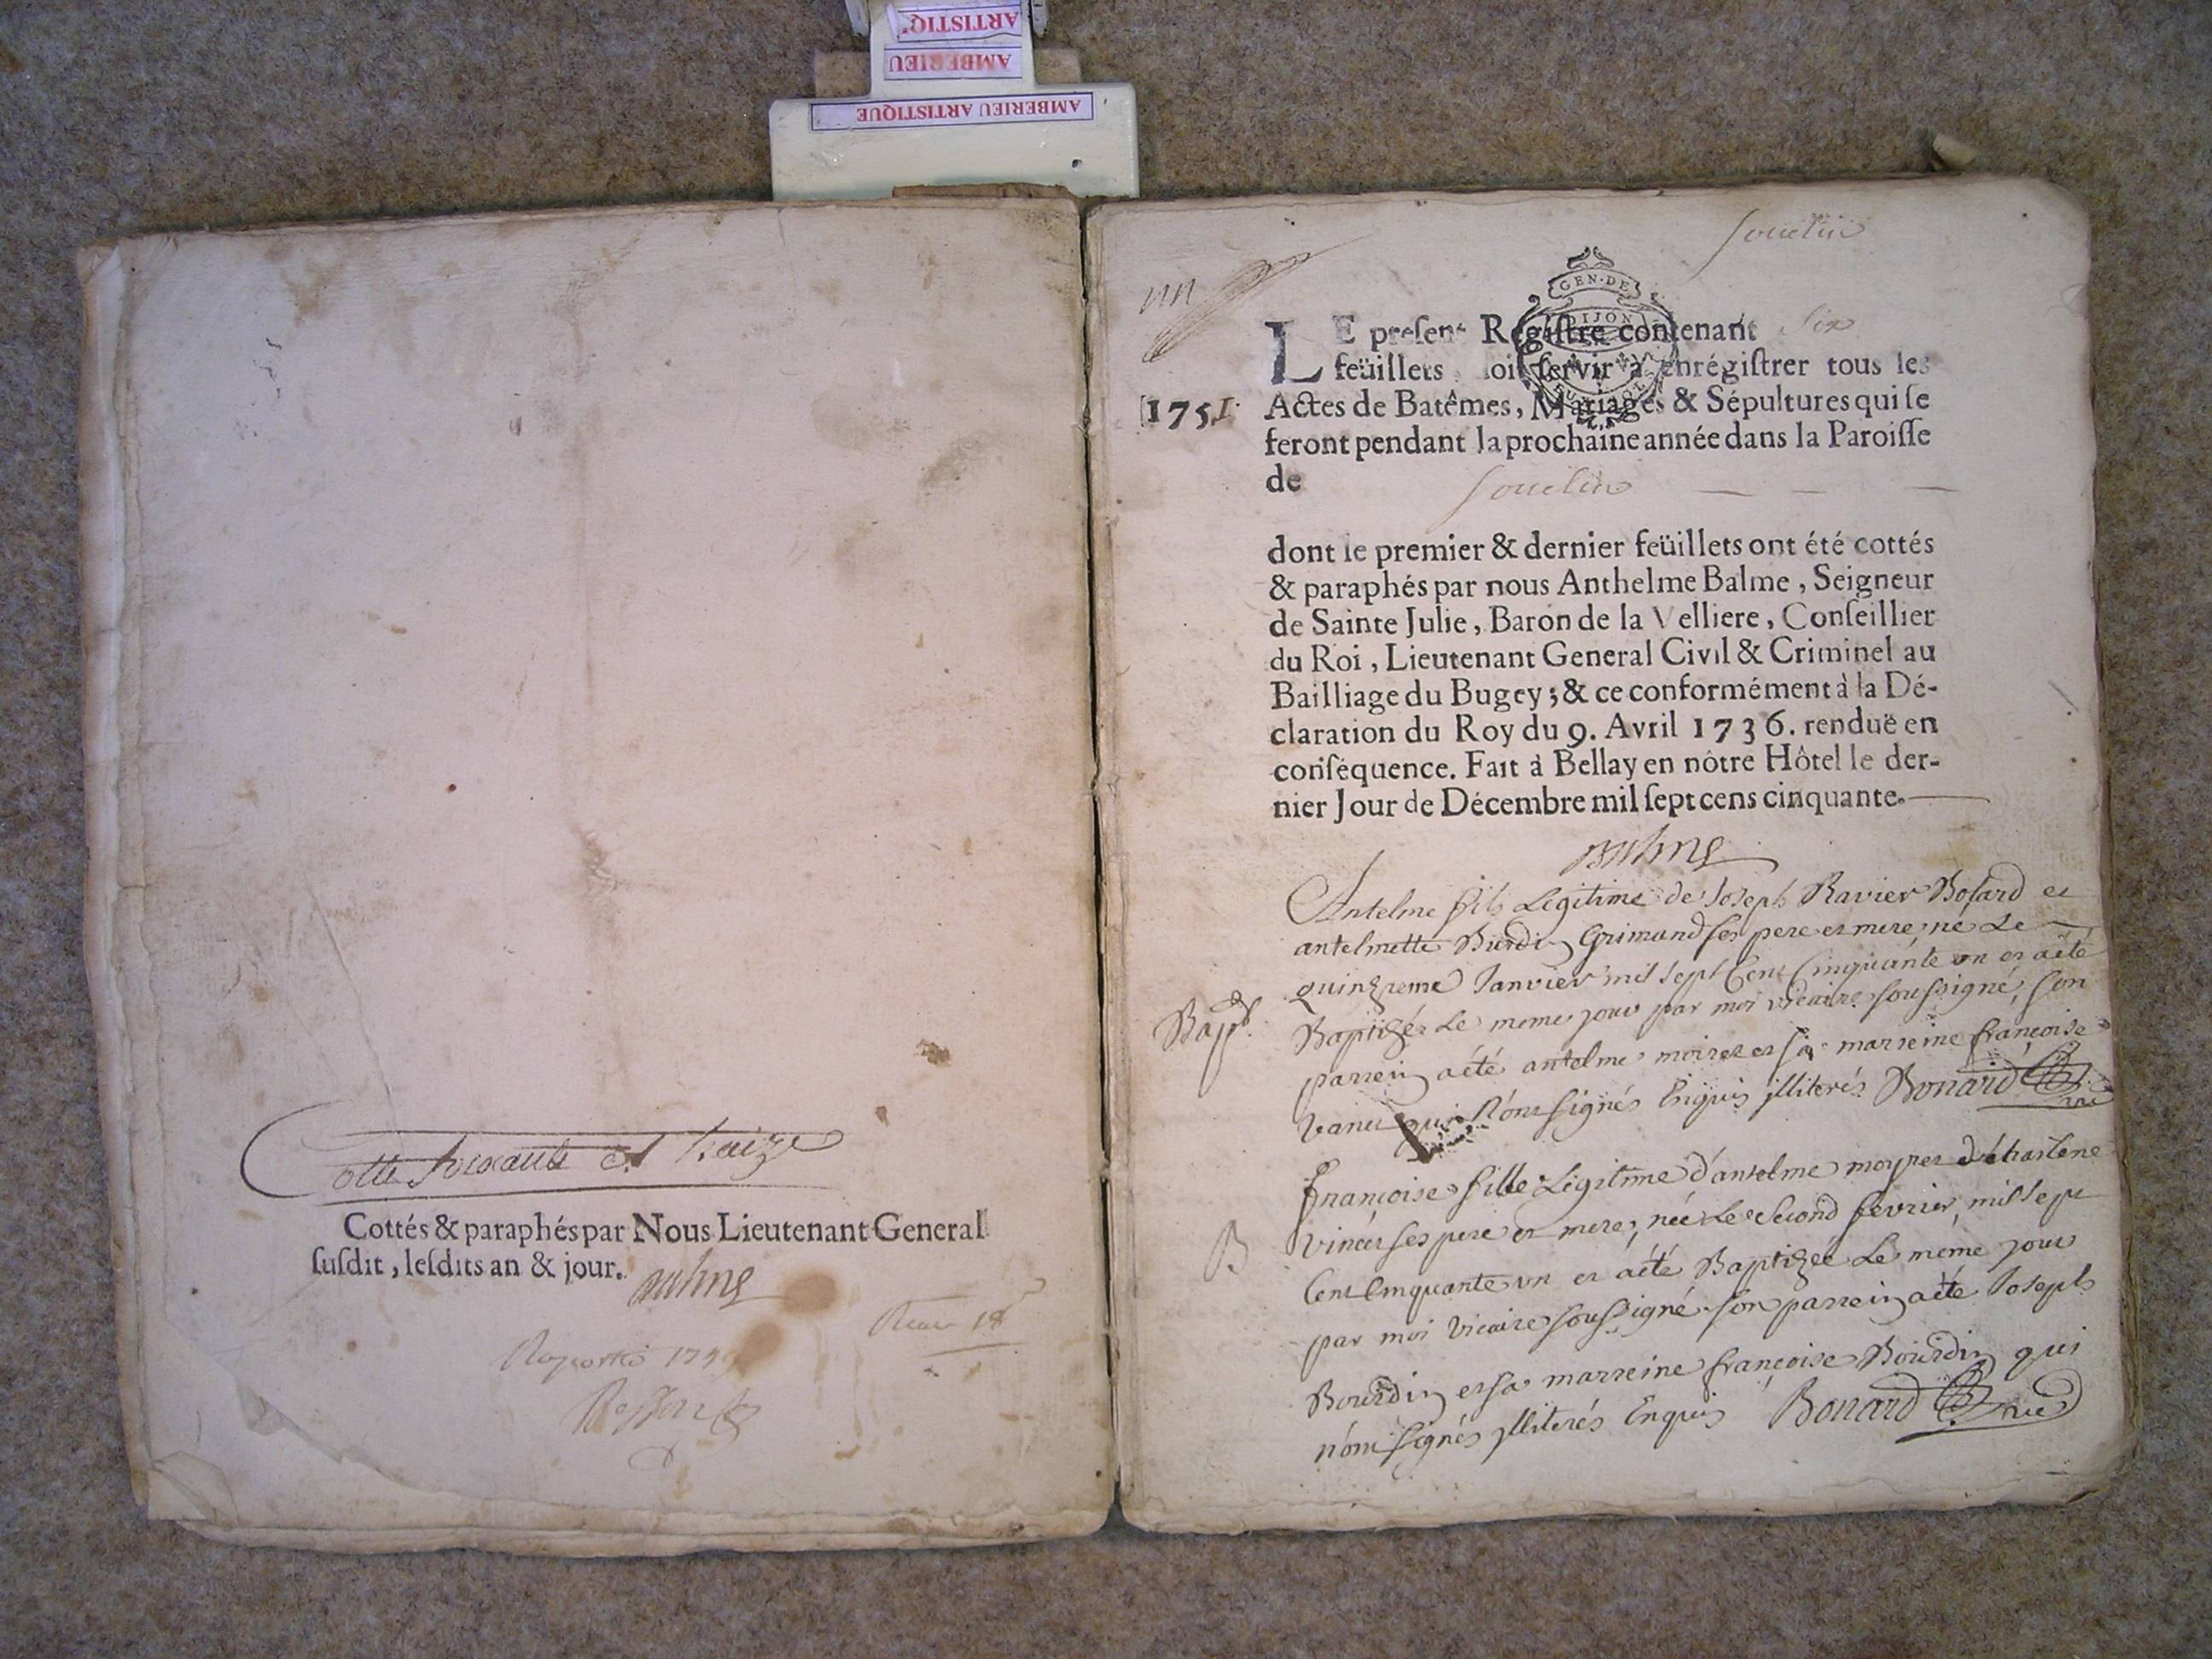 ARTISTIQ'
AMBERIEU
AMBERIEU ARTISTIQUE
Cotte soixante et traize
Cottés & paraphés par Nous Lieutenant General
susdit, lesdits an & jour.
Balme
Raporté
Souclin
GEN·DE
DIJON
un
LE present Régistre contenant Six
feüillets doit servir à enrégistrer tous les
1751. Actes de Batêmes, Mariages & Sépultures qui se
feront pendant la prochaine année dans la Paroisse
de Souclin
dont le premier & dernier feüillets ont été cottés
& paraphés par nous Anthelme Balme, Seigneur
de Sainte Julie, Baron de la Velliere, Conseillier
du Roi, Lieutenant General Civil & Criminel au
Bailliage du Bugey; & ce conformément à la Dé-
claration du Roy du 9. Avril 1736. renduë en
conséquence. Fait à Bellay en nôtre Hôtel le der-
nier Jour de Décembre mil sept cens cinquante.
Balme
Antelme fils Legitime de Joseph Ravier Bosard et
antelmette Burdin Grimand ses pere et mere, né Le
quinzieme Janvier mil sept Cent Cinquante un et a été
Bapt. Baptizé Le meme jour par moi vicaire soussigné, son
parrein a été antelme et sa marreine françoise
qui n'ont signés Enquis illiterés Bonard vic
françoise fille Légitime d'antelme moyret
B vincent ses pere et mere, née Le second fevrier, mil sept
Cent Cinquante un et a été Baptizée Le meme jour
par moi vicaire soussigné son parrein a été Joseph
Bourdin et sa marreine françoise Bourdin qui
n'ont signés illiterés Enquis Bonard vic